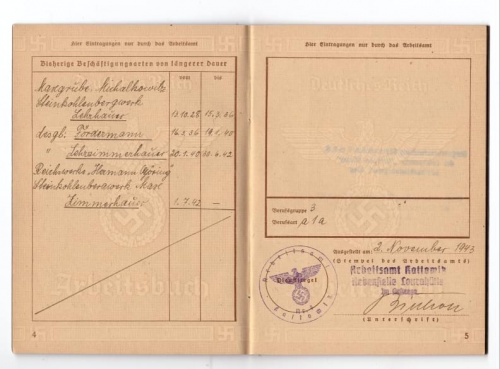 Hier Eintragungen nur durch das Arbeitsamt
Bisherige Beschäftigungsarten von längerer Dauer
vom
bis
Maxgrube Michalkowitz
Steinkohlenbergwerk
Lehrhauer
15.3.36
desgl. Fördermann
16.3.36 19.1.40
" Lehrzimmerhauer 20.1.42
Reichswerke Hermann Göring
Steinkohlenbergwerk Max
Zimmerhauer 1.7.42 —
Arbeitsbuch
4
Hier Eintragungen nur durch das Arbeitsamt
Deutsches Reich
Berufsgruppe 3
Berufsart a1a
Ausgestellt am: 2. November 1943
(Stempel des Arbeitsamts)
Arbeitsamt Kattowitz
Nebenstelle Laurahütte
(Unterschrift)
Arbeitsamt
Dienstsiegel
Kattowitz
5